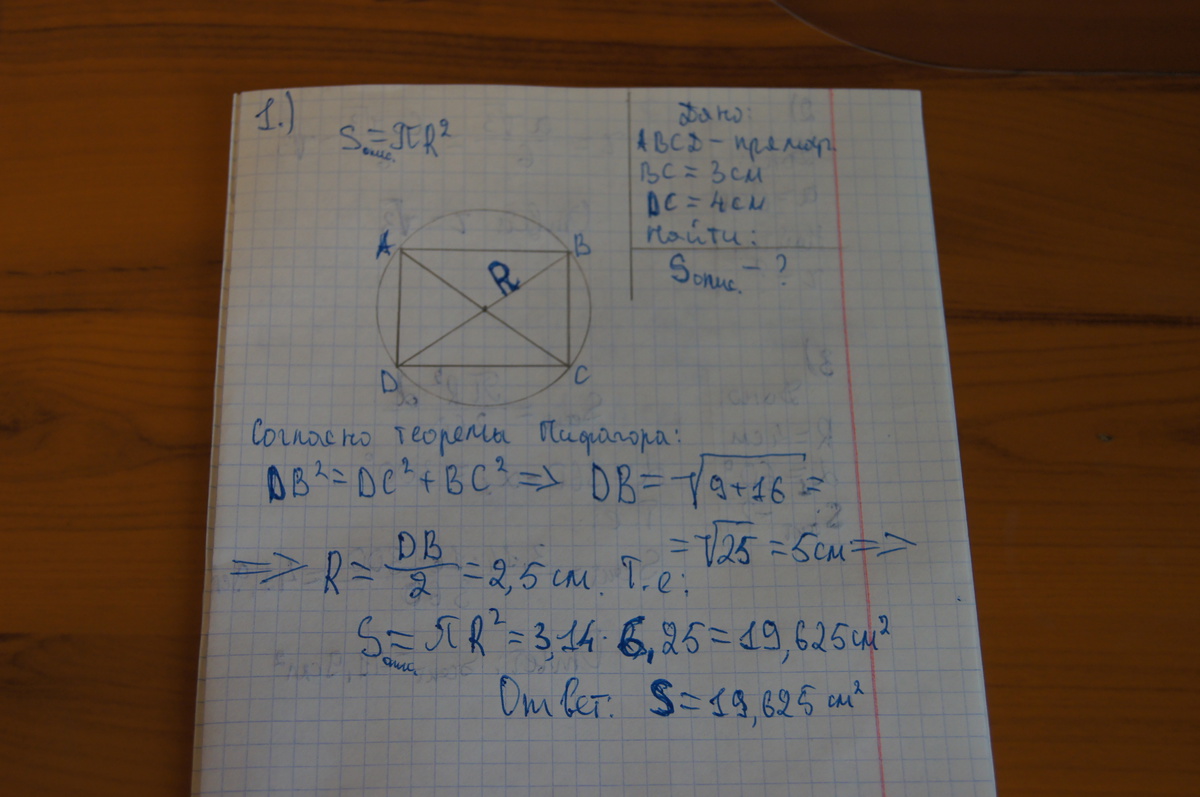 1.)
Sопис. = πR²
Дано:
ABCD - прямоуг.
BC = 3 см
DC = 4 см
Найти:
Sопис. - ?
A
B
R
D
C
Согласно теоремы Пифагора:
DB² = DC² + BC² => DB = √9+16 =
= √25 = 5 см =>
=> R = DB/2 = 2,5 см. Т.е:
Sопис. = πR² = 3,14 · 6,25 = 19,625 см²
Ответ: S = 19,625 см²